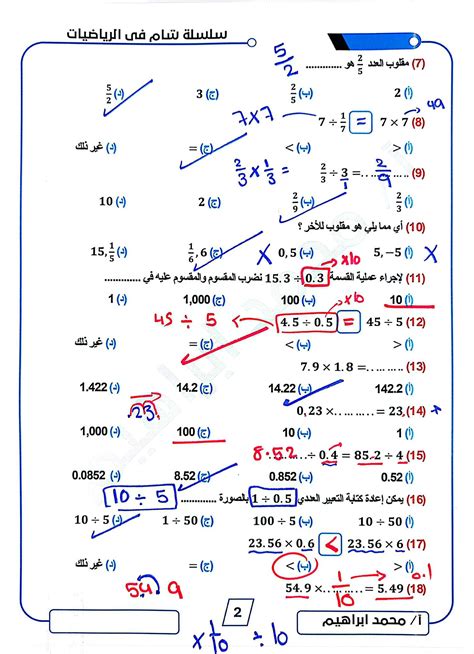 سلسلة شام فى الرياضيات
(7) مقلوب العدد 2/5 هو .............. 5/2
(أ) 2 (ب) 2/5 (ج) 3 (د) 5/2
(8) 7 × 7 = 7 ÷ 1/7 7×7 49
(أ) > (ب) < (ج) = (د) غير ذلك
(9) 2/3 ÷ 3 = ........... 2/9 2/3 × 1/3 1
(أ) 2/3 (ب) 2/9 (ج) 2 (د) 10
(10) أي مما يلي هو مقلوب للآخر ؟
(أ) 5, −5 (ب) 0, 5 (ج) 1/6, 6 (د) 15, 1/5 X X
(11) لإجراء عملية القسمة 0.3 ÷ 15.3 نضرب المقسوم والمقسوم عليه في .............. x10
(أ) 10 (ب) 100 (ج) 1,000 (د) 1
(12) 45 ÷ 5 = 4.5 ÷ 0.5 x10 45 ÷ 5
(أ) > (ب) < (ج) = (د) غير ذلك
(13) 7.9 × 1.8 = ..............
(أ) 142.2 (ب) 14.22 (ج) 14.2 (د) 1.422
(14) 0, 23 × ......... = 23
(أ) 1 (ب) 10 (ج) 100 (د) 1,000
(15) 8.52 ÷ 0.4 = 85.2 ÷ 4
(أ) 0.852 (ب) 0.52 (ج) 8.52 (د) 0.0852
(16) يمكن إعادة كتابة التعبير العددي 1 ÷ 0.5 بالصورة .............. 10 ÷ 5
(أ) 5 ÷ 10 (ب) 100 ÷ 5 (ج) 1 ÷ 50 (د) 10 ÷ 5
(17) 23.56 × 0.6 < 23.56 × 6
(أ) > (ب) < (ج) = (د) غير ذلك
(18) 54.9 × 1/10 = 5.49 0.1 54.9
أ/ محمد ابراهيم
2
x 1/10 ÷ 10